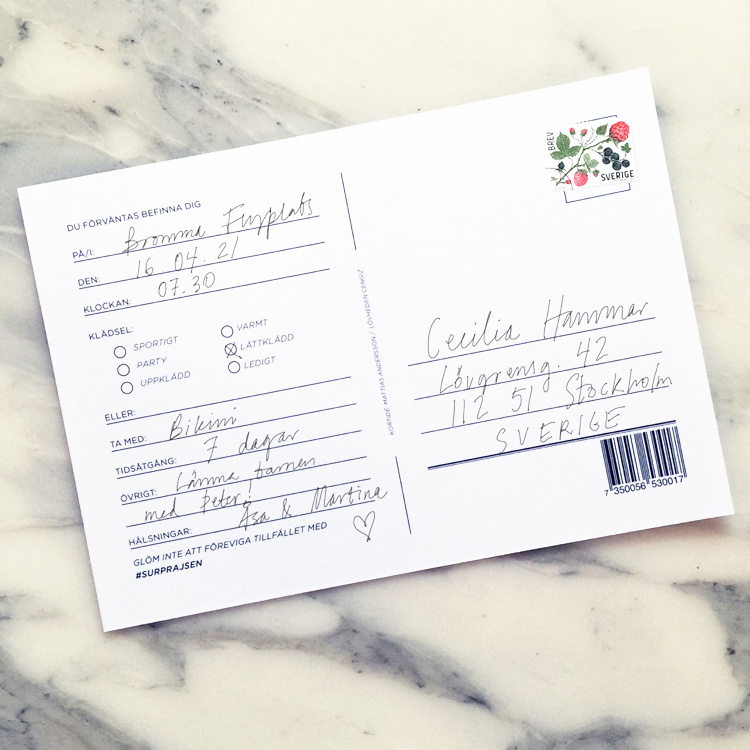 DU FÖRVÄNTAS BEFINNA DIG
PÅ/I: Bromma Flygplats
DEN: 16.04.21
KLOCKAN: 07.30
KLÄDSEL:
SPORTIGT
PARTY
UPPKLÄDD
VARMT
LÄTTKLÄDD
LEDIGT
ELLER:
TA MED: Bikini
TIDSÅTGÅNG: 7 dagar
ÖVRIGT: Lämna barnen
med Peter!
HÄLSNINGAR: Åsa & Martina
GLÖM INTE ATT FÖREVIGA TILLFÄLLET MED
#SURPRAJSEN
KORTIDÉ MATTIAS ANDERSSON / LÖVHEDEN CENGIZ
BREV
SVERIGE
Cecilia Hammar
Lövgrensg. 42
112 51 Stockholm
SVERIGE
7 350056 530017